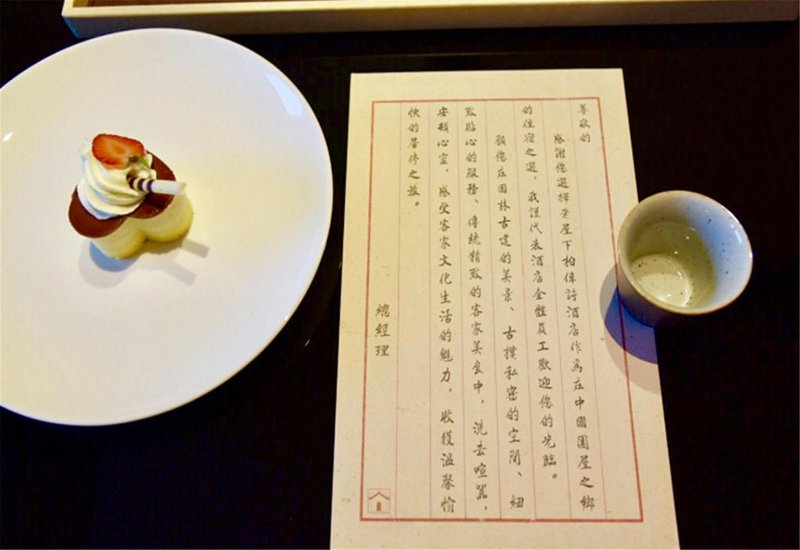 尊敬的
感謝您選擇老屋下柏偉詩酒店作爲在中國圍屋之鄉
的住宿之選，我謹代表酒店全體員工歡迎您的光臨。
願您在園林古建的美景、古樸私密的空間、細
致貼心的服務、傳統精致的客家美食中，洗去喧囂，
安頓心靈，感受客家文化生活的魅力，收獲溫馨愉
快的居停之旅。
總經理